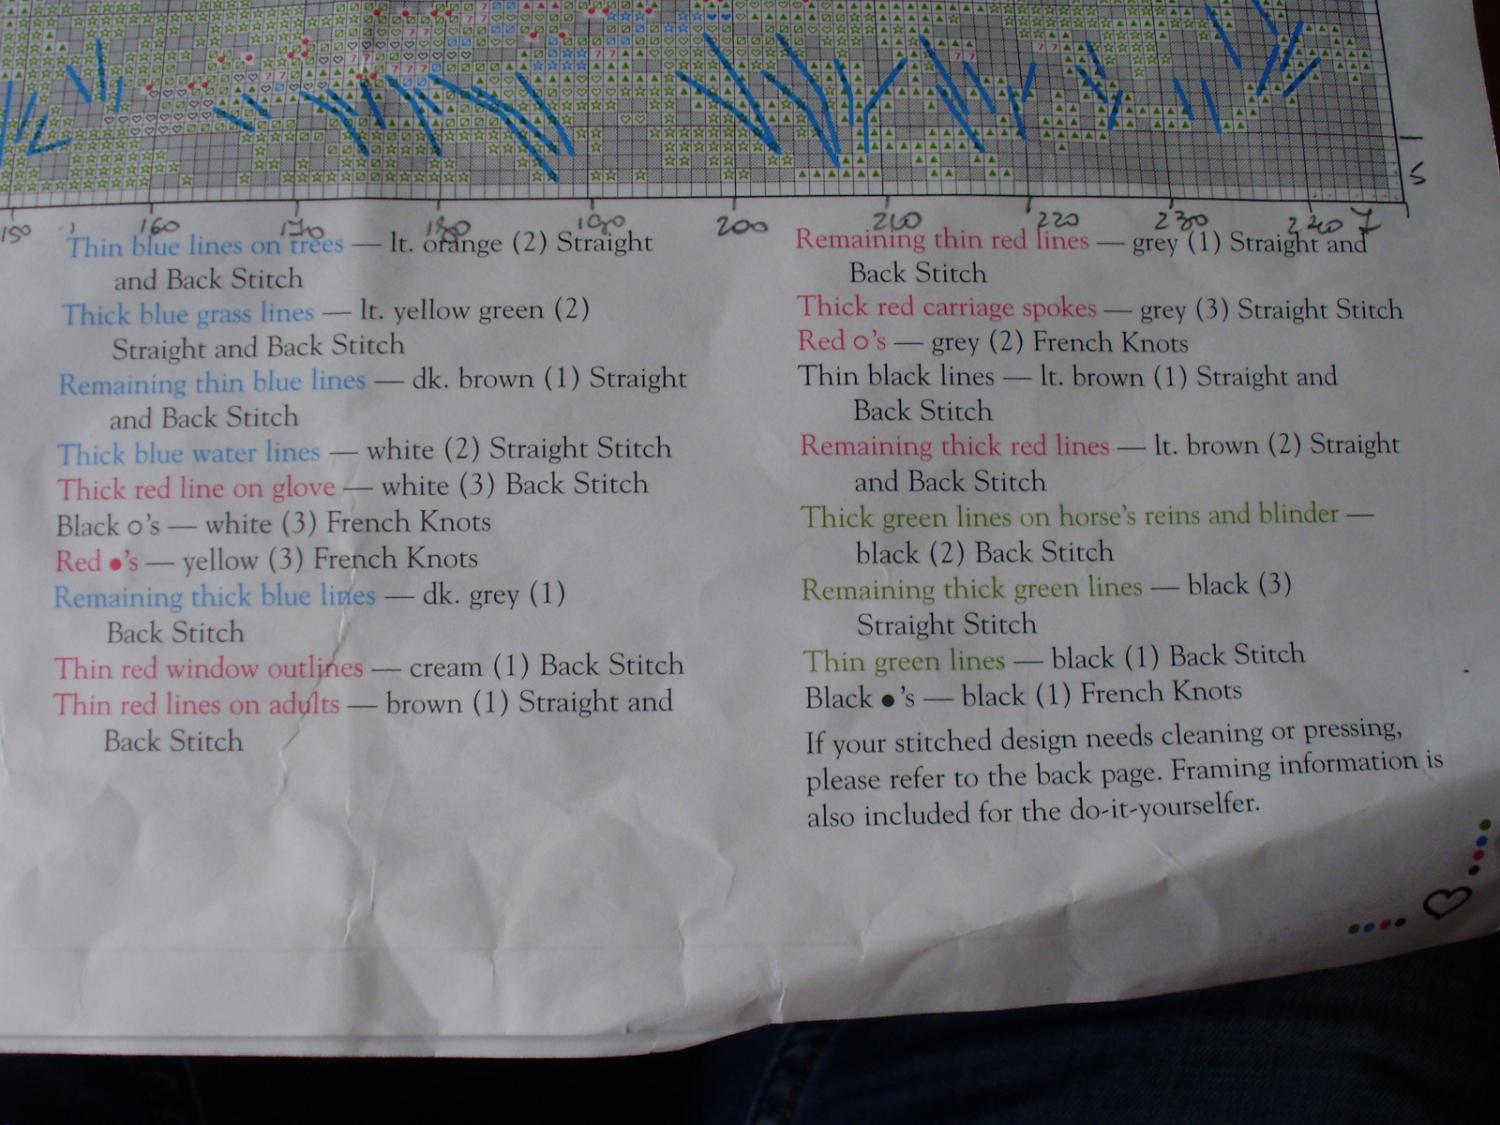 150 160 170 180 190 200 210 220 230 240
5
Thin blue lines on trees — lt. orange (2) Straight
and Back Stitch
Thick blue grass lines — lt. yellow green (2)
Straight and Back Stitch
Remaining thin blue lines — dk. brown (1) Straight
and Back Stitch
Thick blue water lines — white (2) Straight Stitch
Thick red line on glove — white (3) Back Stitch
Black o's — white (3) French Knots
Red ●'s — yellow (3) French Knots
Remaining thick blue lines — dk. grey (1)
Back Stitch
Thin red window outlines — cream (1) Back Stitch
Thin red lines on adults — brown (1) Straight and
Back Stitch
Remaining thin red lines — grey (1) Straight and
Back Stitch
Thick red carriage spokes — grey (3) Straight Stitch
Red o's — grey (2) French Knots
Thin black lines — lt. brown (1) Straight and
Back Stitch
Remaining thick red lines — lt. brown (2) Straight
and Back Stitch
Thick green lines on horse's reins and blinder —
black (2) Back Stitch
Remaining thick green lines — black (3)
Straight Stitch
Thin green lines — black (1) Back Stitch
Black ●'s — black (1) French Knots
If your stitched design needs cleaning or pressing,
please refer to the back page. Framing information is
also included for the do-it-yourselfer.